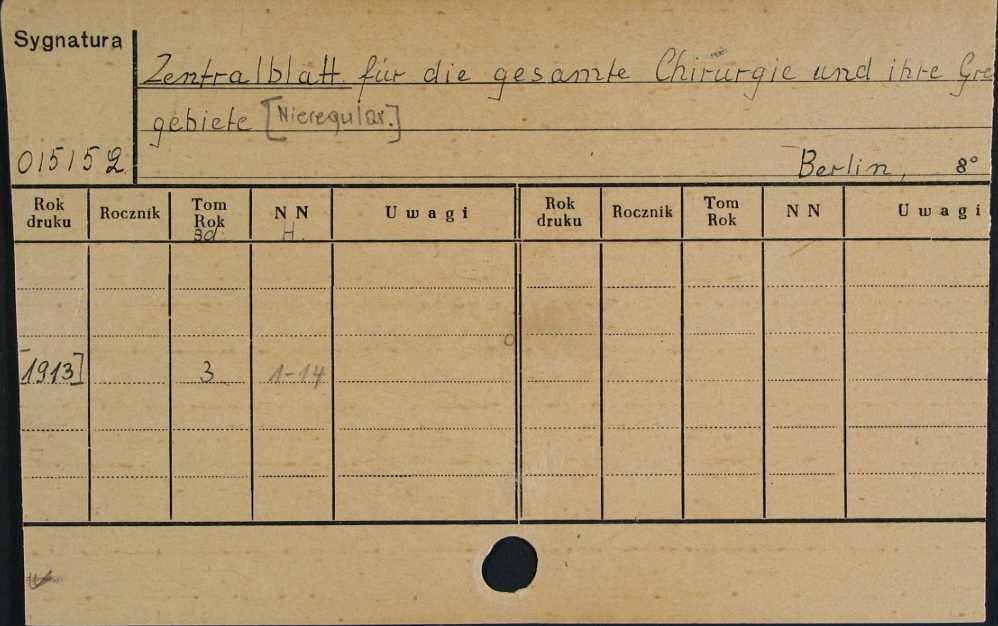 Sygnatura
Zentralblatt für die gesamte Chirurgie und ihre Gre
gebiete [Nieregular.]
015152
Berlin, 8°
Rok druku Rocznik Tom Rok N N Uwagi Rok druku Rocznik Tom Rok N N Uwagi
Bd. H.
[1913] 3 1-14